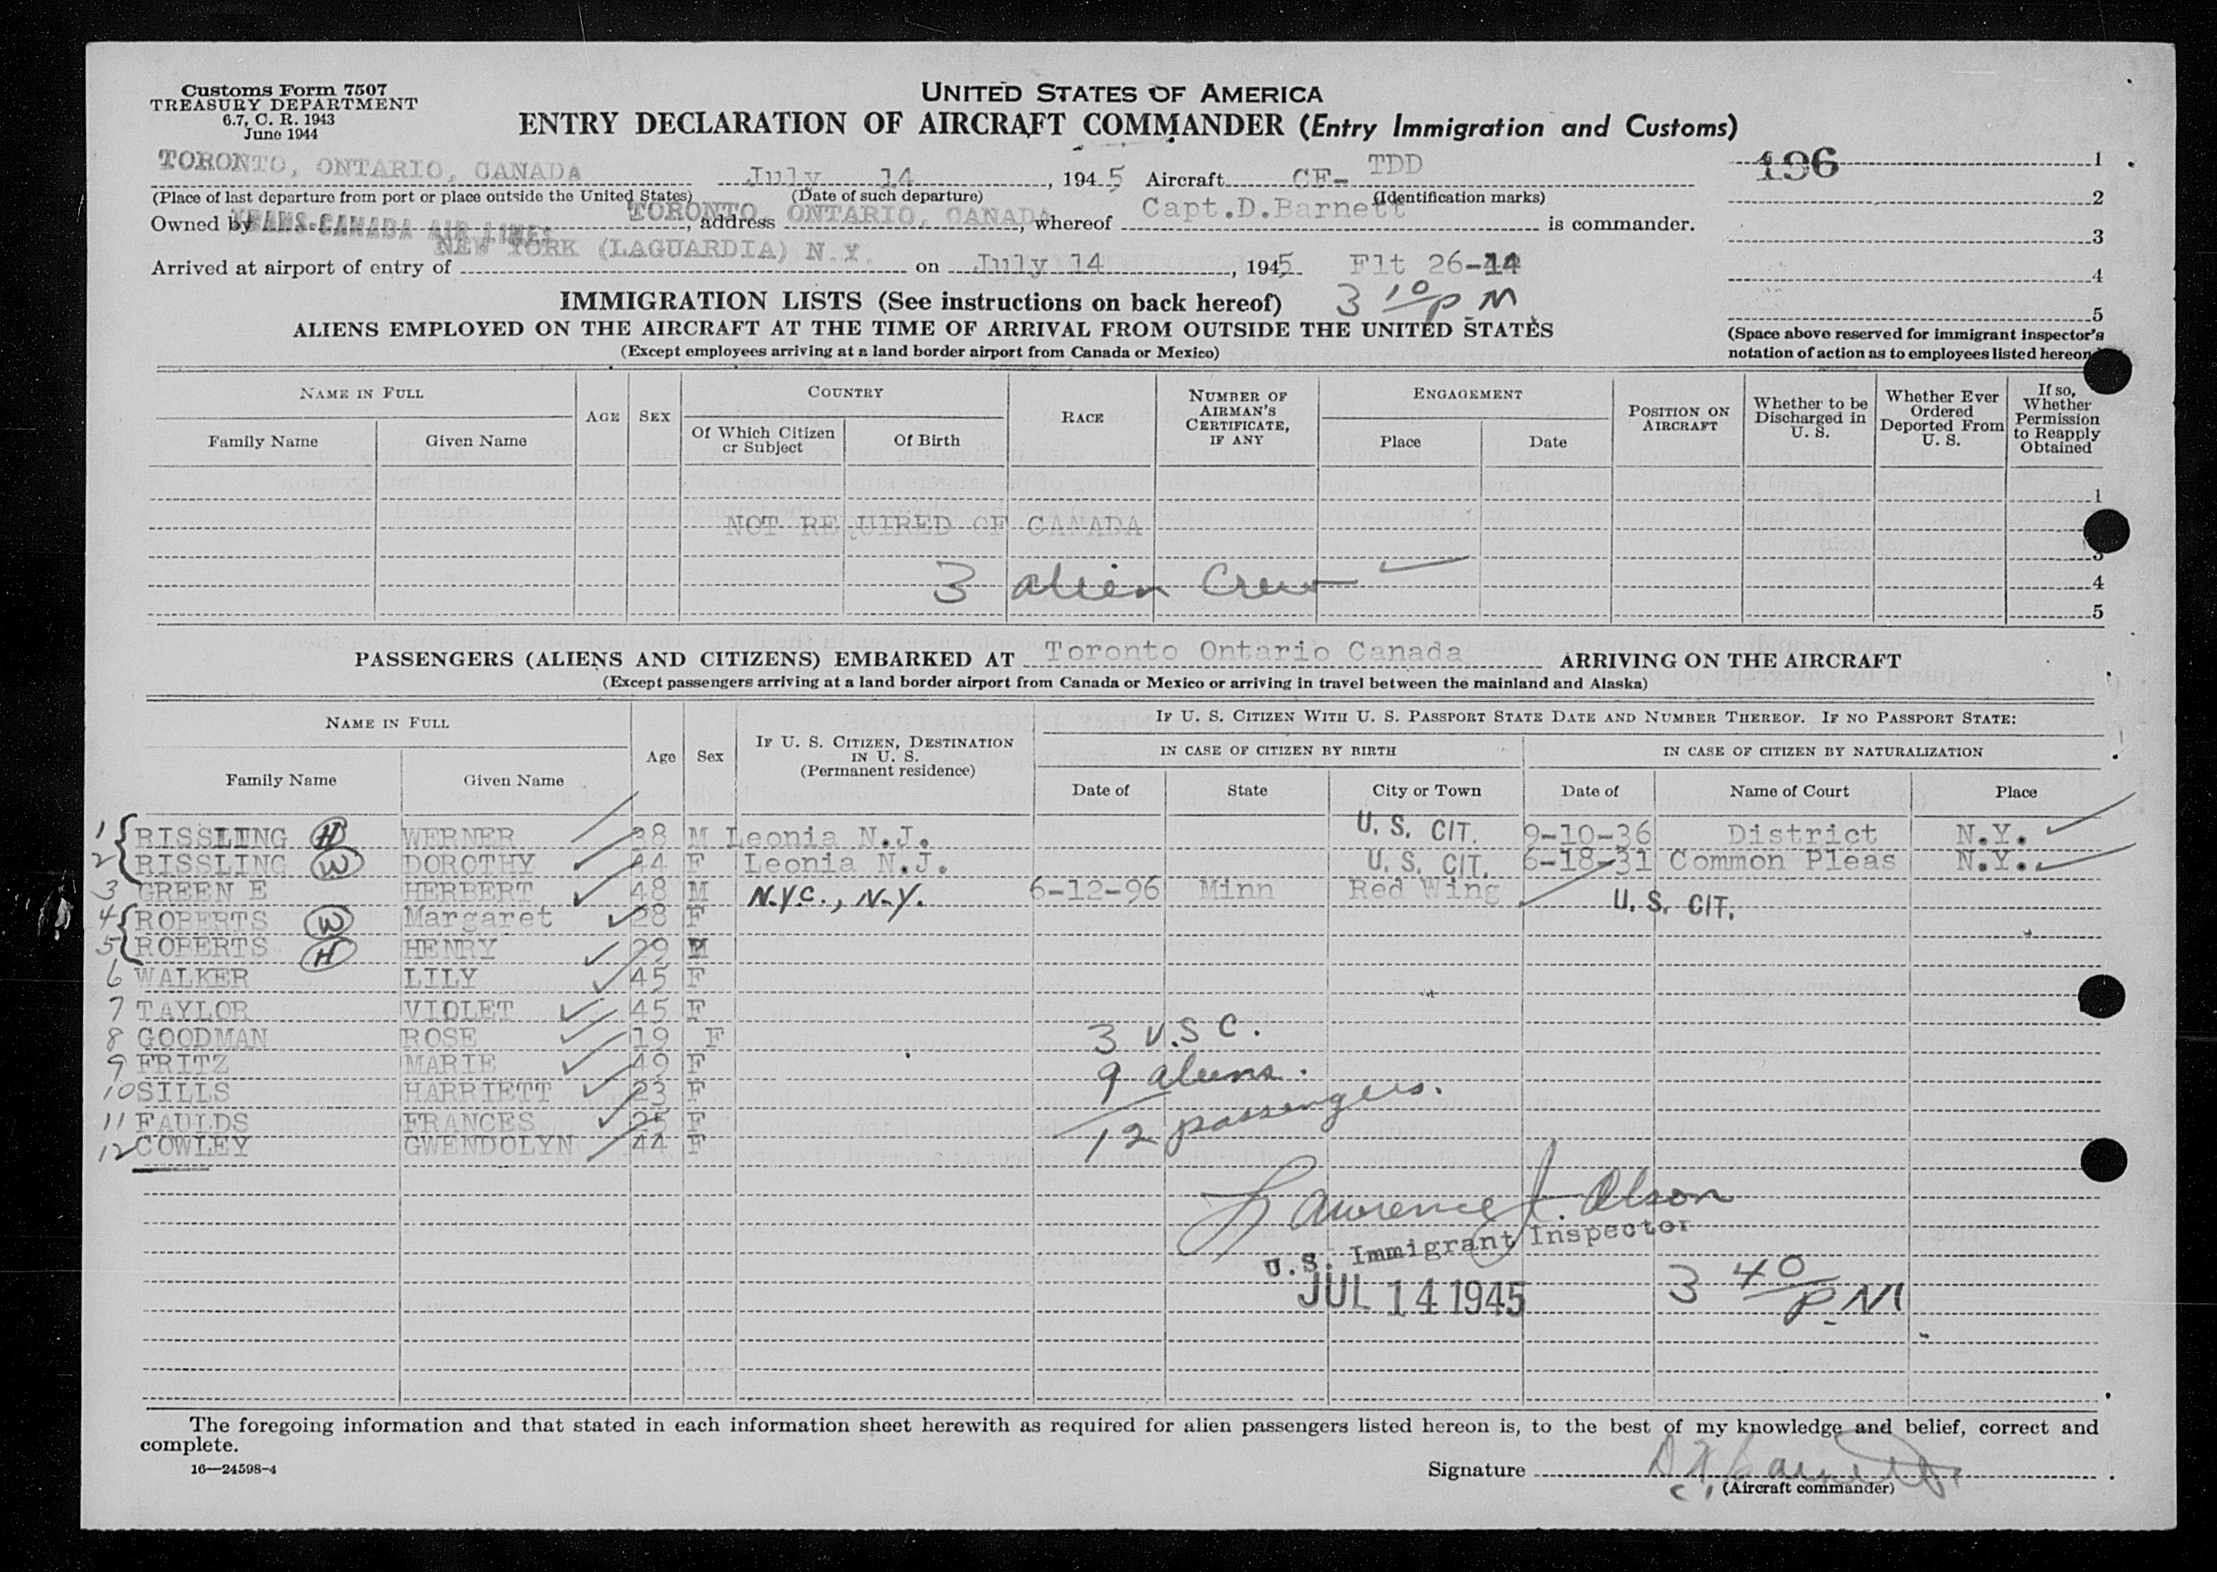 Customs Form 7507
TREASURY DEPARTMENT
6.7, C. R. 1943
June 1944
UNITED STATES OF AMERICA
ENTRY DECLARATION OF AIRCRAFT COMMANDER (Entry Immigration and Customs)
TORONTO, ONTARIO, CANADA July 14, 1945 Aircraft CF- TDD
(Place of last departure from port or place outside the United States) (Date of such departure) (Identification marks)
Owned by TRANS-CANADA AIR LINES, address TORONTO, ONTARIO, CANADA, whereof Capt.D.Barnett is commander.
Arrived at airport of entry of NEW YORK (LAGUARDIA) N.Y. on July 14, 1945 Flt 26-14
196 1
2
3
4
5
(Space above reserved for immigrant inspector's notation of action as to employees listed hereon
IMMIGRATION LISTS (See instructions on back hereof) 3 10/P.M
ALIENS EMPLOYED ON THE AIRCRAFT AT THE TIME OF ARRIVAL FROM OUTSIDE THE UNITED STATES
(Except employees arriving at a land border airport from Canada or Mexico)
NAME IN FULL
Family Name Given Name
AGE SEX
COUNTRY
Of Which Citizen or Subject Of Birth
RACE
NUMBER OF AIRMAN'S CERTIFICATE, IF ANY
ENGAGEMENT
Place Date
POSITION ON AIRCRAFT
Whether to be Discharged in U. S.
Whether Ever Ordered Deported From U. S.
If so, Whether Permission to Reapply Obtained
1
NOT REQUIRED OF CANADA
3
3 alien Crew 4
5
PASSENGERS (ALIENS AND CITIZENS) EMBARKED AT Toronto Ontario Canada ARRIVING ON THE AIRCRAFT
(Except passengers arriving at a land border airport from Canada or Mexico or arriving in travel between the mainland and Alaska)
NAME IN FULL
Family Name Given Name
Age Sex
IF U. S. CITIZEN, DESTINATION IN U. S.
(Permanent residence)
IF U. S. CITIZEN WITH U. S. PASSPORT STATE DATE AND NUMBER THEREOF. IF NO PASSPORT STATE:
IN CASE OF CITIZEN BY BIRTH IN CASE OF CITIZEN BY NATURALIZATION
Date of State City or Town Date of Name of Court Place
1 RISSLING H WERNER 38 M Leonia N.J. U. S. CIT. 9-10-36 District N.Y.
2 RISSLING W DOROTHY 44 F Leonia N.J. U. S. CIT. 6-18-31 Common Pleas N.Y.
3 GREEN E HERBERT 48 M N.Y.C., N.Y. 6-12-96 Minn Red Wing U. S. CIT.
4 ROBERTS W Margaret 28 F
5 ROBERTS H HENRY 29 M
6 WALKER LILY 45 F
7 TAYLOR VIOLET 45 F
8 GOODMAN ROSE 19 F 3 U.S C.
9 FRITZ MARIE 49 F 9 aliens.
10 SILLS HARRIETT 23 F
11 FAULDS FRANCES 25 F 12 passengers.
12 COWLEY GWENDOLYN 44 F
Lawrence J. Olson
U.S. Immigrant Inspector
JUL 14 1945 3 40/P.M
The foregoing information and that stated in each information sheet herewith as required for alien passengers listed hereon is, to the best of my knowledge and belief, correct and
complete.
16—24598-4
Signature
(Aircraft commander)